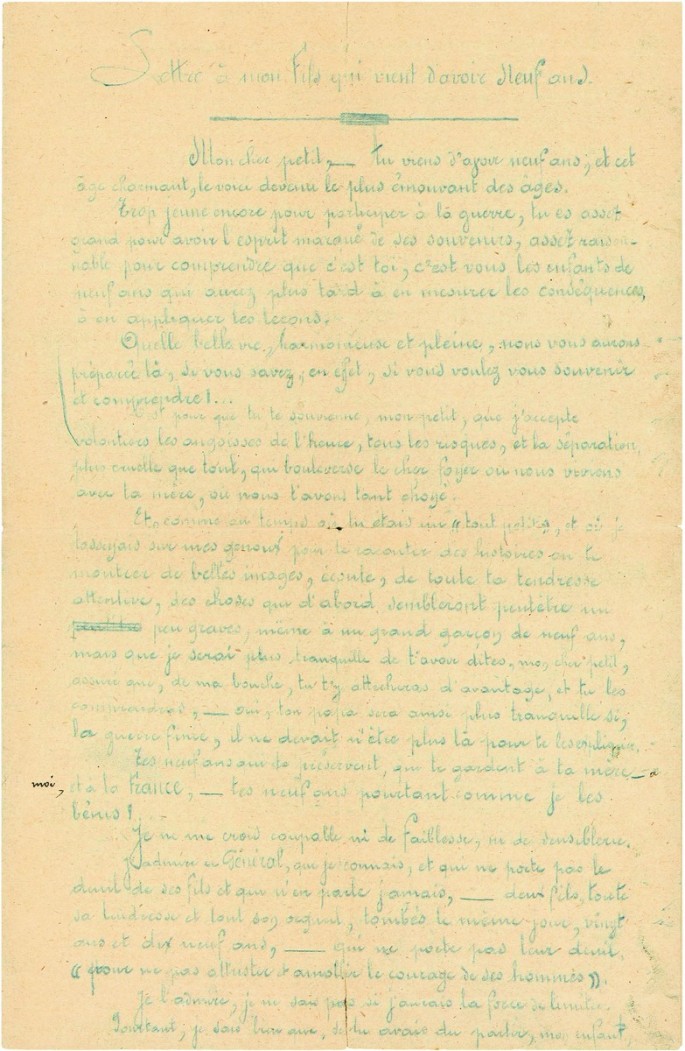 Lettre à mon Fils qui vient d'avoir Neuf ans.
Mon cher petit, — tu viens d'avoir neuf ans; et cet
âge charmant, le voici devenu le plus émouvant des âges.
Trop jeune encore pour participer à la guerre, tu es assez
grand pour avoir l'esprit marqué de ses souvenirs, assez raison-
nable pour comprendre que c'est toi, c'est vous les enfants de
neuf ans qui aurez plus tard à en mesurer les conséquences,
à en appliquer les leçons.
Quelle belle vie, harmonieuse et pleine, nous vous aurons
préparée là, si vous savez, en effet, si vous voulez vous souvenir
et comprendre!...
C'est pour que tu te souvienne, mon petit, que j'accepte
volontiers les angoisses de l'heure, tous les risques, et la séparation,
plus cruelle que tout, qui bouleverse le cher foyer où nous vivions
avec ta mère, où nous t'avons tant choyé.
Et, comme au temps où tu étais un "tout petit", et où je
t'asseyais sur mes genoux pour te raconter des histoires ou te
montrer de belles images, écoute, de toute ta tendresse
attentive, des choses qui d'abord, sembleront peutêtre un
peu graves, même à un grand garçon de neuf ans,
mais que je serai plus tranquille de t'avoir dites, mon cher petit,
assuré que, de ma bouche, tu t'y attacheras d'avantage, et tu les
comprendras, — oui, ton papa sera ainsi plus tranquille si,
la guerre finie, il ne devait n'être plus là pour te les expliquer.
Tes neuf ans qui te préservent, qui te gardent à ta mère, à
moi, et à la France, — tes neuf ans pourtant comme je les
bénis!
Je ne me crois coupable ni de faiblesse, ni de sensiblerie.
J'admire ce Général, que je connais, et qui ne porte pas le
deuil de ses fils et qui n'en parle jamais, — deux fils, toute
sa tendresse et tout son orgueil, tombés le même jour, vingt
ans et dix neuf ans, — qui ne porte pas leur deuil,
"pour ne pas attrister et amollir le courage de ses hommes".
Je l'admire, je ne sais pas si j'aurais la force de l'imiter.
Pourtant; je sais bien que, si tu avais du partir, mon enfant,